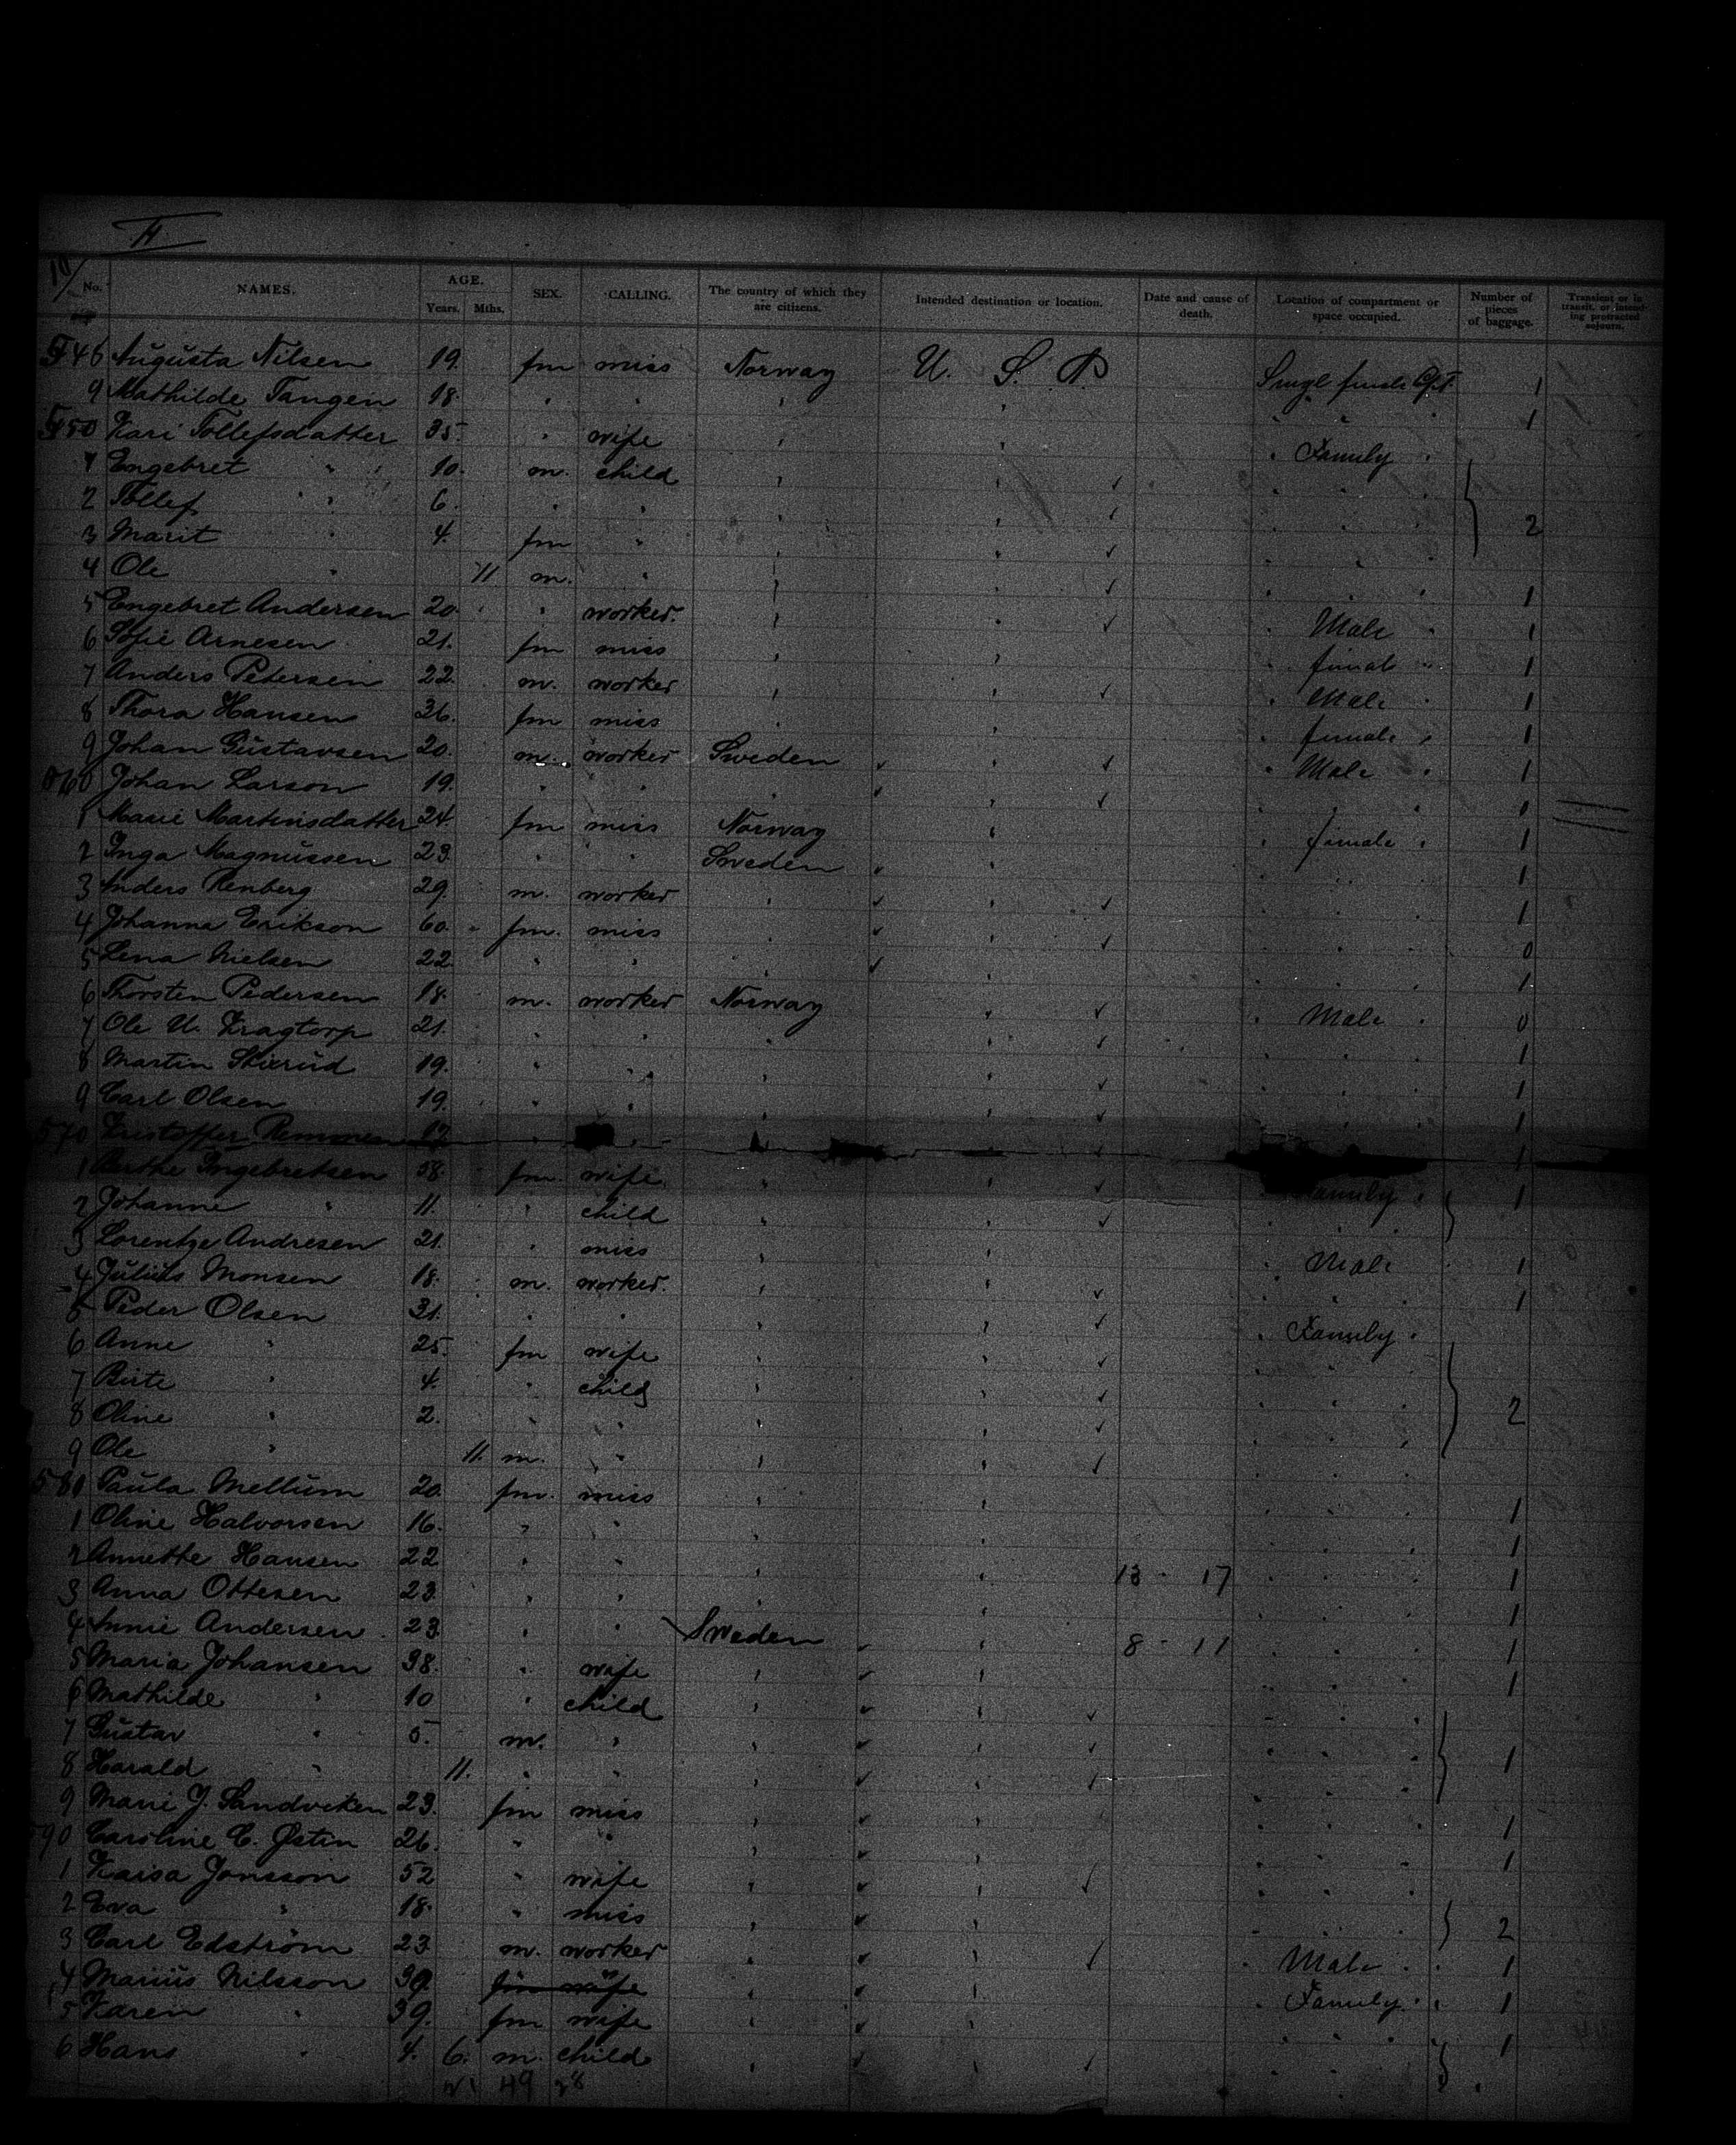 No. NAMES. AGE. Years. Mths. SEX. CALLING. The country of which they are citizens. Intended destination or location. Date and cause of death. Location of compartment or space occupied. Number of pieces of baggage. Transient or in transit, or intending protracted sojourn.
Augusta Nilsen 19. fm miss Norway U. S. Singl female 1
9 Mathilde Tangen 18. " " " " " " 1
550 Kari Tollefsdatter 35. " wife " " " Family "
1 Engebret " 10. m. child " "
2 Tollef " 6. " " " " 2
3 Marit " 4. fm " " "
4 Ole " 11 m. " " " 1
5 Engebret Andersen 20. " worker. " " " Male " 1
6 Sofie Arnesen 21. fm miss " " " femal " 1
7 Anders Petersen 22. m. worker " " " Male " 1
8 Thora Hansen 36. fm miss " " " female " 1
9 Johan Gustavsen 20. m. worker Sweden " " Male " 1
560 Johan Larson 19. " " " " " "
1 Marie Martinsdatter 24. fm miss Norway " " female " 1
2 Inga Magnussen 23. " " Sweden " " " 1
3 Anders Renberg 29. m. worker " " " " 1
4 Johanna Erikson 60. fm. miss " " " " 0
5 Lena Nielsen 22. " " " " " " 1
6 Thorsten Pedersen 18. m. worker Norway " " Male " 0
7 Ole U. Kragtorp 21. " " " " " " 1
8 Martin Skierud 19. " " " " " " 1
9 Carl Olsen 19. " " " " " " 1
570 Kristoffer 1
1 Berthe Ingebretsen 58. fm. wife. " " " Family " 1
2 Johanne " 11. " child " "
3 Lorentze Andresen 21. " miss " " " Male 1
4 Julius Monsen 18. m. worker. " " " " 1
5 Peder Olsen 31. " " " " " Family "
6 Anne " 25. fm wife " "
7 Birte " 4. " child " "
8 Oline " 2. " " " " 2
9 Ole " 11. m. " " "
580 Paula Mellum 20. fm. miss " " 1
1 Oline Halvorsen 16. " " " " 1
2 Annette Hansen 22 " " " " 13 - 17 " " 1
3 Anna Ottesen 23. " " " " 1
4 Annie Andersen 23 " " Sweden " 8 - 11 " " 1
5 Maria Johansen 38. " wife " " 1
6 Mathilde " 10 " child " "
7 Gustav " 5. m. " " " 1
8 Harald " 11. " " " "
9 Marie J. Sandviken 23. fm miss " " 1
590 Caroline C. Østin 26. " " " " 1
1 Kaisa Jonsson 52 " wife " "
2 Eva " 18. " miss " " 2
3 Carl Edström 23 m. worker " " " Male " 1
4 Marius Nilsson 39. fm wife " " " Family " 1
5 Karen " 39. fm wife " " 1
6 Hans " 4. 6. m. child " "
49